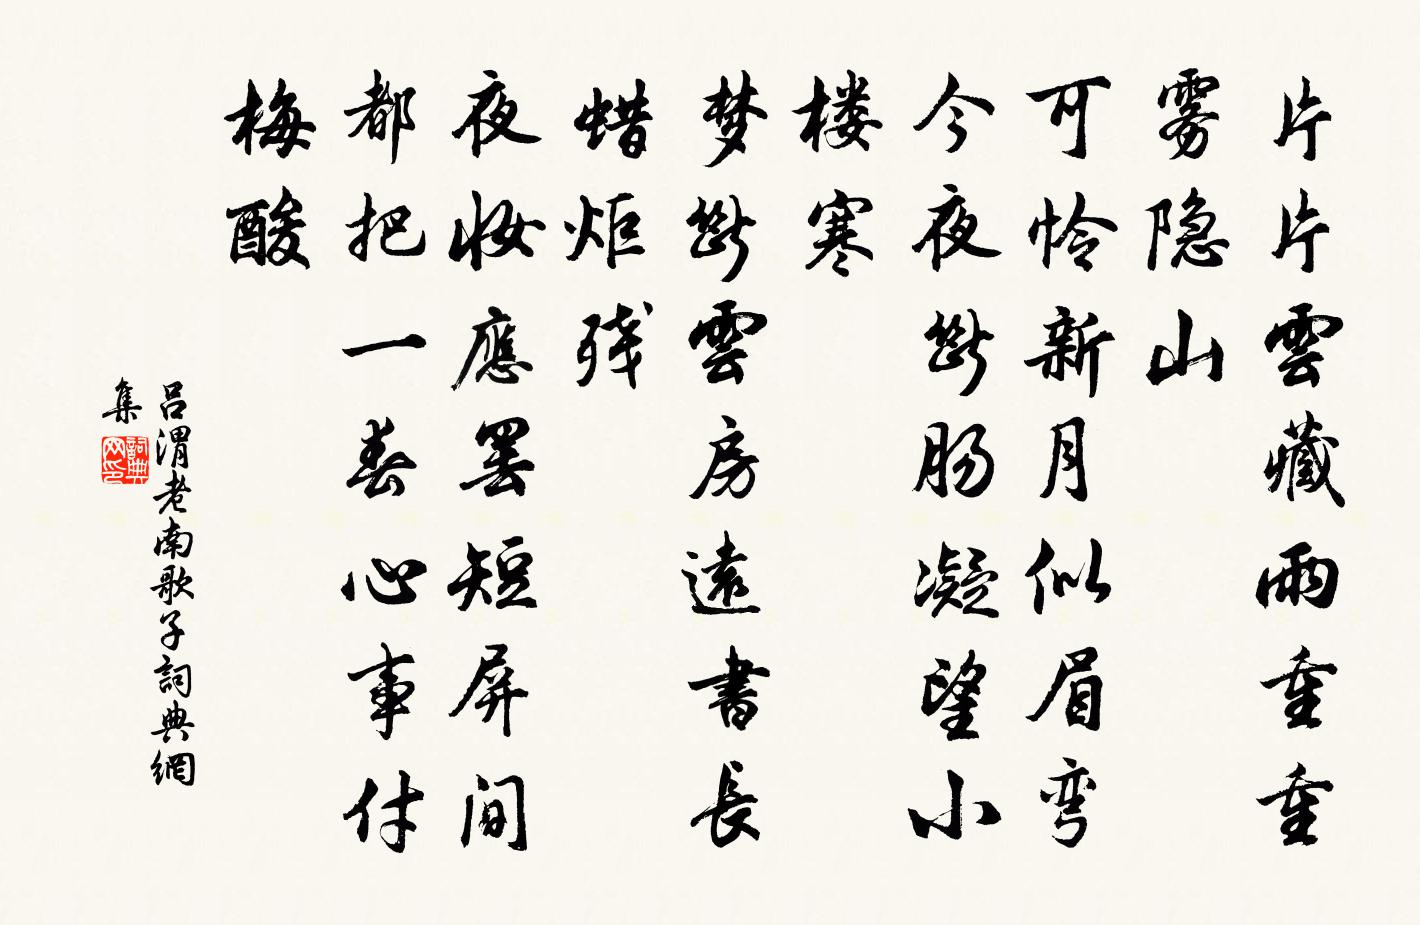 片片雲藏雨重重
雾隐山
可怜新月似眉弯
今夜断肠凝望小
楼寒
梦断雲房遠書長
蜡炬残
夜妝應罢短屏间
都把一春心事付
梅酸
吕渭老南歌子詞典網
集
詞典
网印